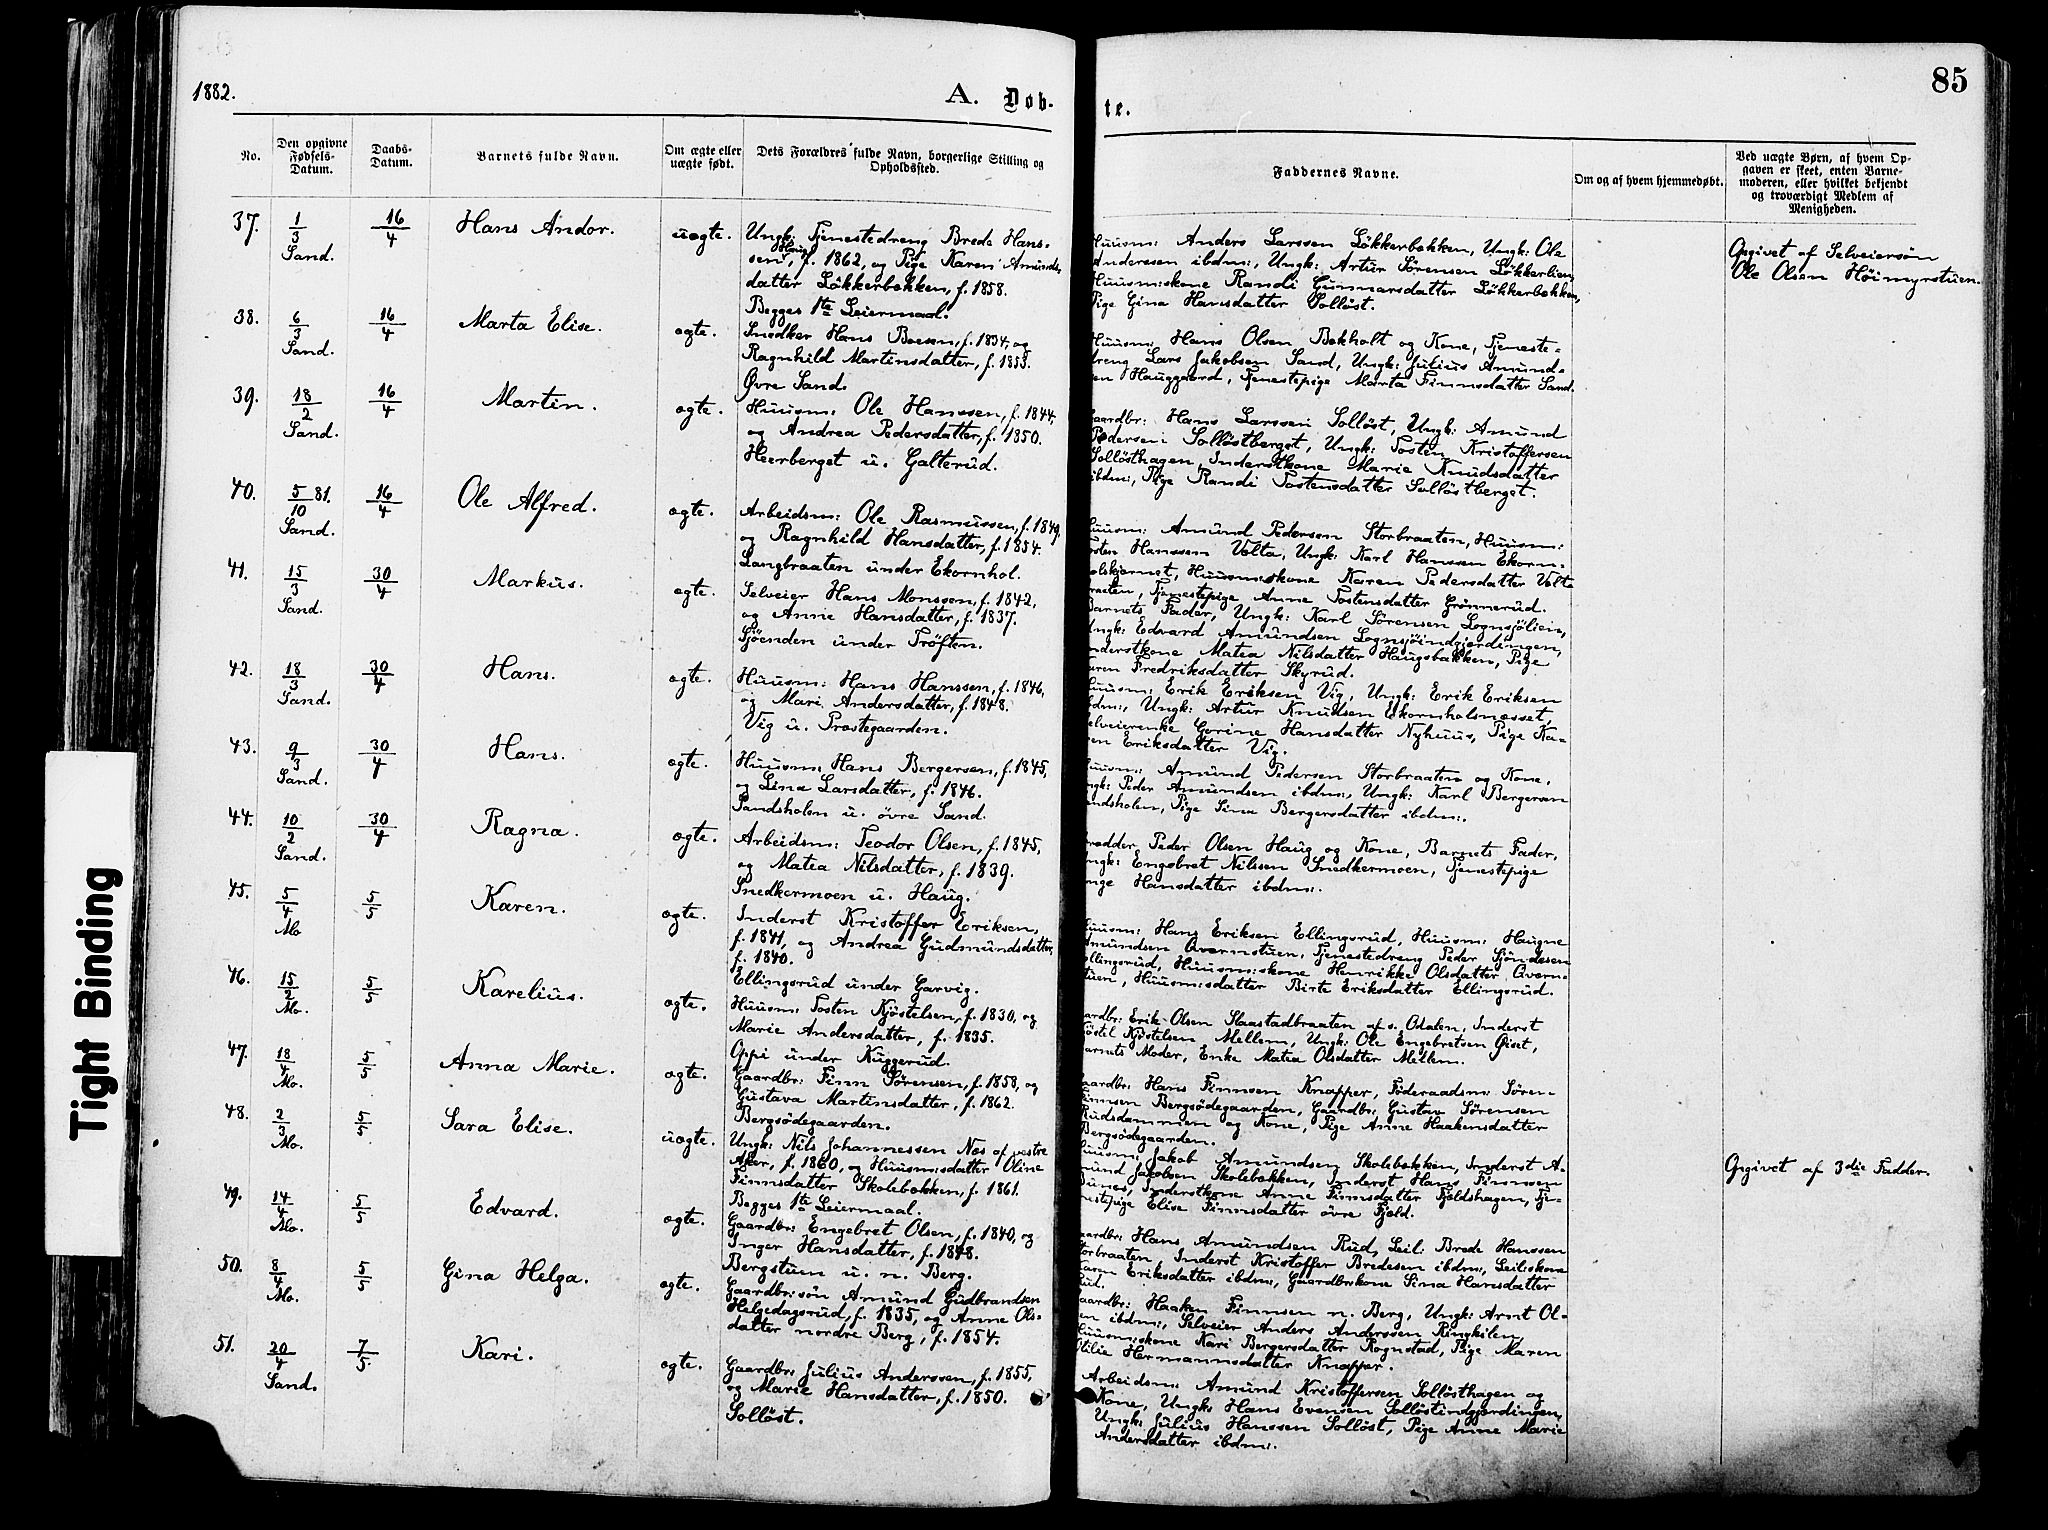 1882.
A. Døb-
te.
85
No.
Den opgivne Fødsels-Datum.
Daabs-Datum.
Barnets fulde Navn.
Om ægte eller uægte født.
Dets Forældres fulde Navn, borgerlige Stilling og Opholdssted.
Faddernes Navne.
Om og af hvem hjemmedøbt.
Ved uægte Børn, af hvem Op-
gaven er skeet, enten Barne-
moderen, eller hvilket bekjendt
og troværdigt Medlem af
Menigheden.
37. 1/3 Sand. 16/4 Hans Andor. uægte.
Ungk: Tjenestedreng Brede Hans-
sen Haug, f. 1862, og Pige Karen Amunds-
datter Løkkerbækken, f. 1858.
Begges 1te Leiermaal.
Huusm: Anders Larssen Løkkerbækken, Ungk: Ole
Andersen ibdm:, Ungk: Artur Sørensen Løkkerlien,
Huusm:skone Randi Gunnarsdatter Løkkerbækken,
Pige Gina Hansdatter Solløst.
Opgivet af Selveiersøn
Ole Olsen Høimyrstuen.
38. 6/3 Sand. 16/4 Marta Elise. ægte.
Snedker Hans Boesen, f. 1834, og
Ragnhild Martinsdatter, f. 1853.
Øvre Sand.
Huusm: Hans Olsen Bekholt og Kone, Tjeneste-
dreng Lars Jakobsen Sand, Ungk: Julius Amund-
sen Hauggaard, Tjenestepige Marta Finnsdatter Sand.
39. 18/2 Sand. 16/4 Martin. ægte.
Huusm: Ole Hanssen, f. 1844,
og Andrea Pedersdatter, f. 1850.
Heerberget u. Galterud.
Gaardbr: Hans Larssen Solløst, Ungk: Amund
Pedersen Solløstberget, Ungk: Tosten Kristoffersen
Solløsthagen, Inderstkone Marie Knudsdatter
ibdm:, Pige Randi Tostensdatter Solløstberget.
40. 5/10 81. Sand. 16/4 Ole Alfred. ægte.
Arbeidsm: Ole Rasmussen, f. 1849,
og Ragnhild Hansdatter, f. 1854.
Langbraaten under Ekornhol.
Huusm: Amund Pedersen Storbraaten, Huusm:
Tosten Hanssen Volta, Ungk: Karl Hanssen Ekorn-
holskjernet, Huusm:skone Karen Pedersdatter Volta
braaten, Tjenestepige Anne Tostensdatter Grønnerud.
41. 15/3 Sand. 30/4 Markus. ægte.
Selveier Hans Monssen, f. 1842,
og Anne Hansdatter, f. 1837.
Sjøenden under Trøften.
Barnets Fader, Ungk: Karl Sørensen Lognsjølien,
Ungk: Edvard Amundsen Lognsjøindgjerdingen,
Inderstkone Matea Nilsdatter Haugsbakken, Pige
Karen Fredriksdatter Skyrud.
42. 18/3 Sand. 30/4 Hans. ægte.
Huusm: Hans Hanssen, f. 1846,
og Mari Andersdatter, f. 1848.
Vig u. Præstegaarden.
Huusm: Erik Eriksen Vig, Ungk: Erik Eriksen
ibdm:, Ungk: Artur Knudsen Ekornholsnæsset,
Selveierenke Gorine Hansdatter Nyhuus, Pige Ka-
ren Eriksdatter Vig.
43. 9/3 Sand. 30/4 Hans. ægte.
Huusm: Hans Bergersen, f. 1845,
og Lina Larsdatter, f. 1846.
Sandsholen u. øvre Sand.
Huusm: Amund Pedersen Storbraaten og Kone,
Ungk: Peder Amundsen ibdm:, Ungk: Karl Bergersen
Sandsholen, Pige Sina Bergersdatter ibdm:.
44. 10/2 Sand. 30/4 Ragna. ægte.
Arbeidsm: Teodor Olsen, f. 1845,
og Matea Nilsdatter, f. 1839.
Snedkermoen u. Haug.
Peder Olsen Haug og Kone, Barnets Fader,
Ungk: Engebret Nilssen Snedkermoen, Tjenestepige
Inge Hansdatter ibdm:.
45. 5/4 Mo 5/5 Karen. ægte.
Inderst Kristoffer Eriksen,
f. 1841, og Andrea Gudmundsdatter,
f. 1840.
Ellingsrud under Garvig.
Huusm: Hans Eriksen Ellingsrud, Huusm: Haagne
Amundsen Qvernstuen, Tjenestedreng Peder Sjøndesen
Ellingsrud, Huusm:skone Henrikke Olsdatter Qvern-
stuen, Huusm:sdatter Birte Eriksdatter Ellingsrud.
46. 15/2 Mo. 5/5 Karelius. ægte.
Huusm: Tosten Kjøstelsen, f. 1830, og
Marie Andersdatter, f. 1835.
Oppi under Kuggerud.
Gaardbr: Erik Olsen Slaastadbraaten af s. Odalen, Inderst
Kjøstel Kjøstelsen Mellem, Ungk: Ole Engebretsen Øiset,
Barnets Moder, Enke Matea Olsdatter Mellem.
47. 18/4 Mo. 5/5 Anna Marie. ægte.
Gaardbr: Finn Sørensen, f. 1858, og
Gustava Martinsdatter, f. 1862.
Bergsødegaarden.
Gaardbr: Hans Finnsen Knapper, Føderaadsm: Søren
Finnsen Bergsødegaarden, Gaardbr: Gustav Sørensen
Rudsdammen og Kone, Pige Anne Haakensdatter
Bergsødegaarden.
48. 2/3 Mo. 5/5 Sara Elise. uægte.
Ungk: Nils Johannessen Næs af vestre
Aker, f. 1860, og Huusm:sdatter Oline
Finnsdatter Skolebækken, f. 1861.
Begges 1te Leiermaal.
Huusm: Jakob Amundsen Skolebækken, Inderst A-
mund Jakobsen Skolebækken, Inderst Hans Finnsen
Bunes, Inderstkone Anne Finnsdatter Fjeldshagen, Tje-
nestepige Elise Finnsdatter øvre Fjeld.
Opgivet af 3die Fadder.
49. 14/4 Mo. 5/5 Edvard. ægte.
Gaardbr: Engebret Olsen, f. 1840, og
Inger Hansdatter, f. 1848.
Bergstuen u. n. Berg.
Gaardbr: Hans Amundsen Rud, Leil: Brede Hanssen
Storbraaten, Inderst Kristoffer Bredesen ibdm:, Leil:skone
Karen Eriksdatter ibdm:, Gaardbr:skone Sina Hansdatter
Rud.
50. 8/4 Mo. 5/5 Gina Helga. ægte.
Gaardbr:søn Amund Gudbrandsen
Helgedagsrud, f. 1835, og Anne Ols-
datter nordre Berg, f. 1854.
Gaardbr: Haaken Finnsen n. Berg, Ungk: Arnt Ol-
sen ibdm:, Selveier Anders Anderssen Ringkilen,
Huusm:skone Kari Bergersdatter Rognstad, Pige Maren
Otilie Hermannsdatter Knapper.
51. 20/4 Sand. 7/5. Kari. ægte.
Gaardbr: Julius Anderssen, f. 1855,
og Marie Hansdatter, f. 1850.
Solløst.
Arbeidsm: Amund Kristoffersen Solløsthagen og
Kone, Ungk: Hans Evensen Solløstindgjerdingen,
Ungk: Julius Hanssen Solløst, Pige Anne Marie
Andersdatter ibdm:.
Tight Binding